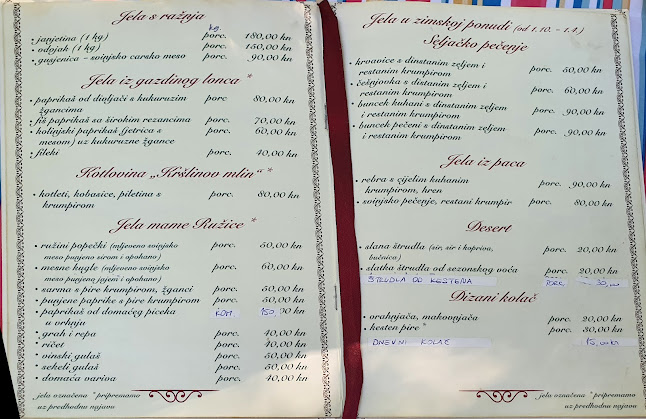 Jela s ražnja
kg.
• janjetina (1 kg) porc. 180,00 kn
• odojak (1 kg) porc. 150,00 kn
• gusjenica - svinjsko carsko meso porc. 90,00 kn
Jela iz gazdinog lonca *
• paprikaš od divljači s kukuruznim porc. 80,00 kn
žgancima
• fiš paprikaš sa širokim rezancima porc. 70,00 kn
• kotlinjski paprikaš (jetrica s porc. 60,00 kn
mesom) uz kukuruzne žgance
• fileki porc. 40,00 kn
Kotlovina „Kršlinov mlin“ *
• kotleti, kobasice, piletina s porc. 80,00 kn
krumpirom
Jela mame Ružice *
• ružini popečki (mljeveno svinjsko porc. 50,00 kn
meso punjeno sirom i opohano)
• mesne kugle (mljeveno svinjsko porc. 60,00 kn
meso punjeno jajeni i opohano)
• sarma s pire krumpirom, žganci porc. 50,00 kn
• punjene paprike s pire krumpirom porc. 50,00 kn
• paprikaš od domaćeg piceka KOM. 150,00 kn
u vrhnju
• grah i repa porc. 40,00 kn
• ričet porc. 40,00 kn
• vinski gulaš porc. 50,00 kn
• sekeli gulaš porc. 50,00 kn
• domaća variva porc. 40,00 kn
jela označena *pripremamo
uz predhodnu najavu
Jela u zimskoj ponudi (od 1.10. - 1.4.)
Seljačko pečenje
• krvavice s dinstanim zeljem i porc. 50,00 kn
restanim krumpirom
• češnjovka s distanim zeljem i porc. 60,00 kn
restanim krumpirom
• buncek kuhani s dinstanim zeljem porc. 90,00 kn
i restanim krumpirom
• buncek pečeni s dinstanim zeljem porc. 90,00 kn
i restanim krumpirom
Jela iz paca
• rebra s cijelim kuhanim porc. 90,00 kn
krumpirom, hren
• svinjsko pečenje, restani krumpir porc. 80,00 kn
Desert
• slana štrudla (sir, sir i kopriva, porc. 20,00 kn
bučnica)
• slatka štrudla od sezonskog voća porc. 20,00 kn
ŠTRUDLA OD KESTENA PORC. 30,00
Dizani kolač
• orahnjača, makovnjača porc. 20,00 kn
• kesten pire * porc. 30,00 kn
DNEVNI KOLAČ 15,00 kn
jela označena *pripremamo
uz predhodnu najavu